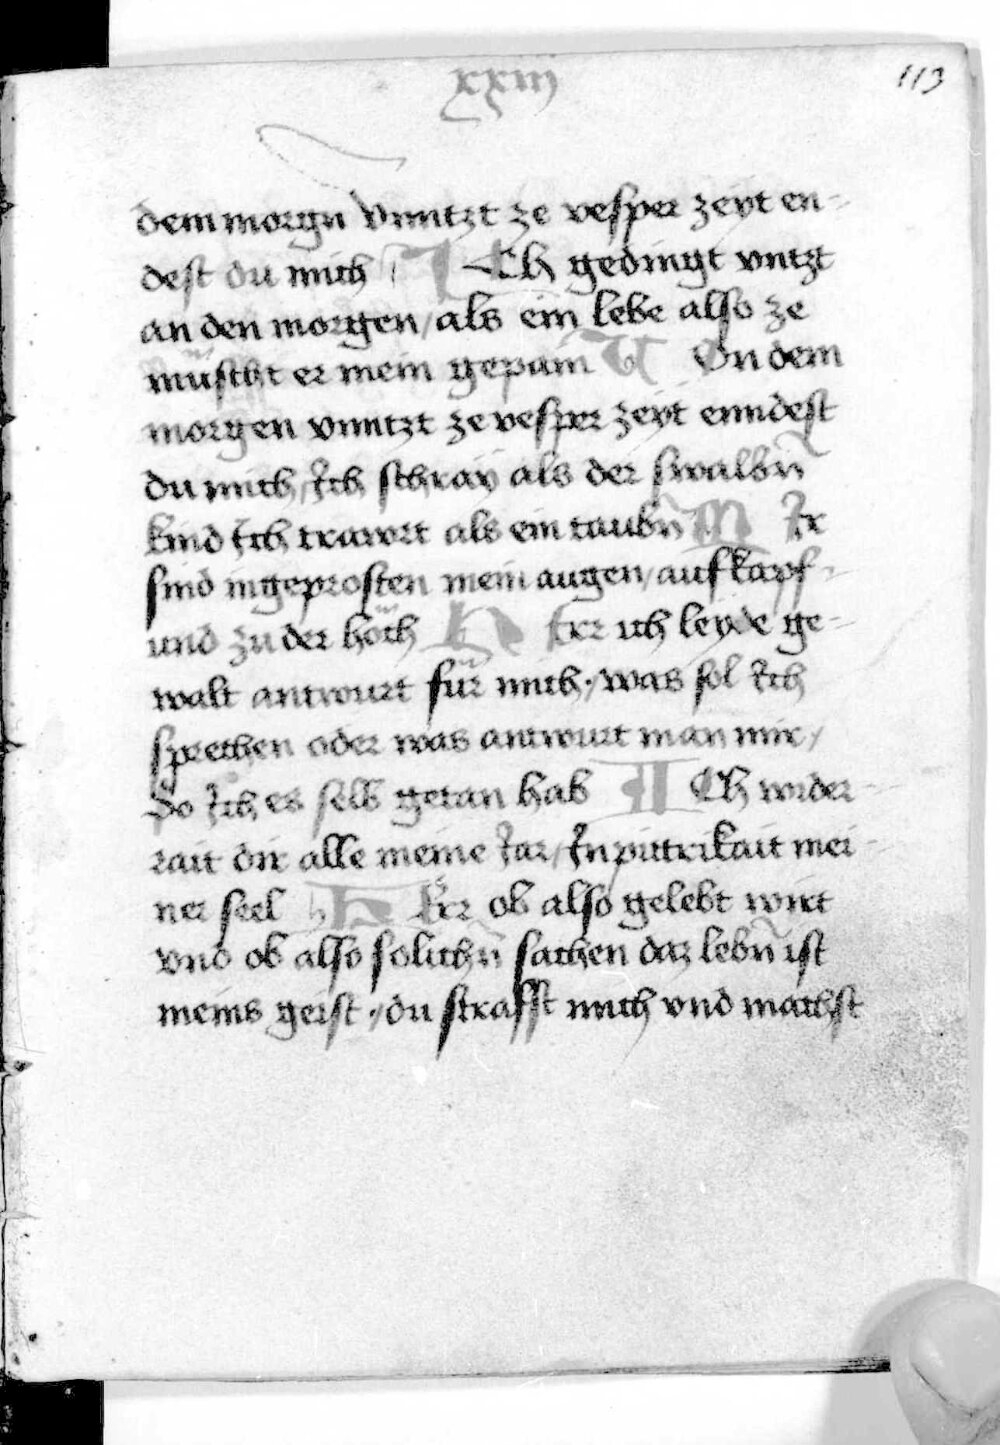 xxiij
113
dem morgn vnntzt ze vesper zeyt en-
dest du mich I Ch gedingt vntzt
an den morgen / als ein lebe also ze
müscht er mein gepain V On dem
morgen vnntzt ze vesper zeyt enndest
du mich / Ich schray als der swalbn̄
kind Ich trawrt als ein taubn̄ M Ir
sind ingeprosten mein augen / aufkapf-
und zu der höch H Err ich leyde ge-
walt antwurt für mich / was sol Ich
sprechen oder was antwurt man mir /
do Ich es selb getan hab I Ch wider-
rait dir alle meine Jar / In pittrikait mei-
ner seel H Err ob also gelebt wirt
vnd ob also solichn̄ sachen daz lebn̄ ist
meins geist / du strafft mich vnd machst